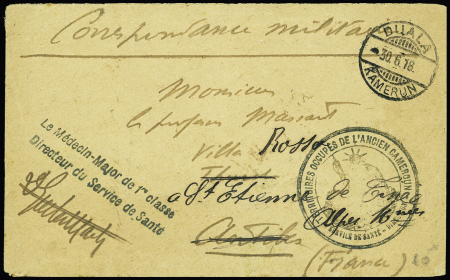 Correspondance militaire
DUALA
30.6.18.
KAMERUN
Monsieur
le professeur Massart
Villa Rossa
Le Médecin-Major de 1re classe
Directeur du Service de Santé
TERRITOIRES OCCUPÉS DE L'ANCIEN CAMEROUN
DE SANTÉ
à St Etienne de Tinée
Antibes (Alpes Mmes)
(France)